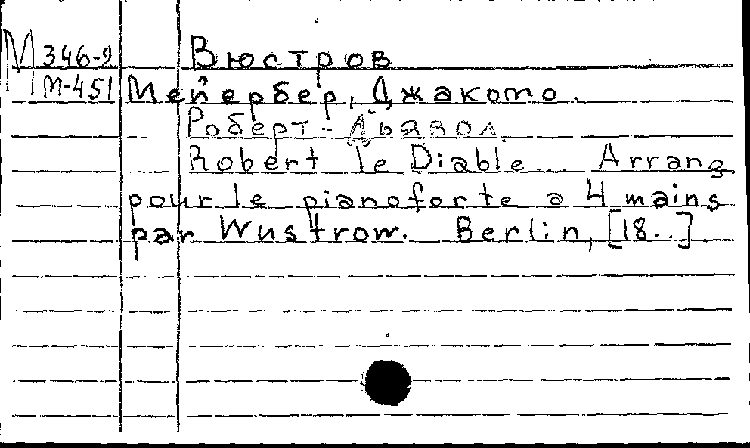 М 346-2 Вюстров
М-451 Мейербер, Джакомо.
Роберт-Дьявол.
Robert le Diable. Arrang
pour le pianoforte a 4 mains
par Wustrow. Berlin, [18..]